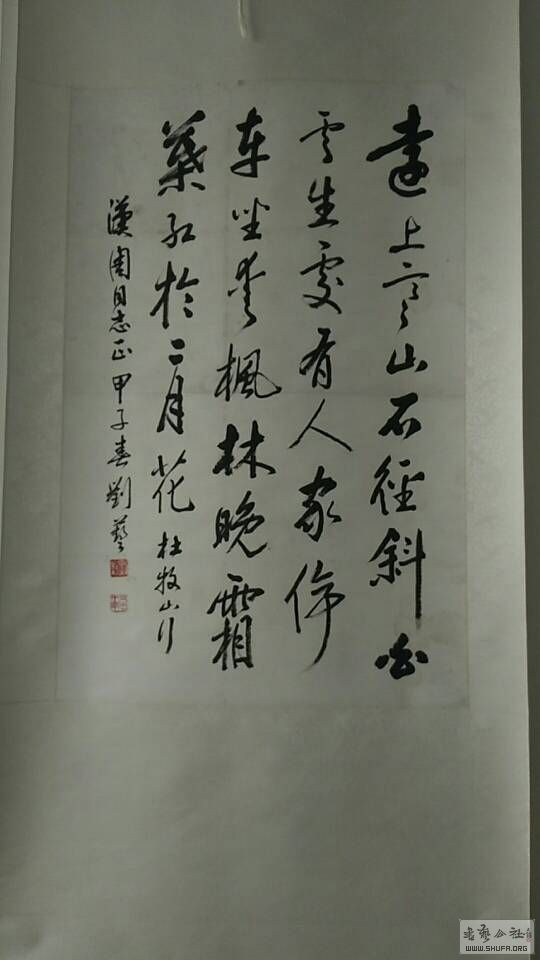 遠上寒山石徑斜白
雲生處有人家停
車坐愛楓林晚霜
葉紅於二月花 杜牧山行
漢周同志正 甲子春 劉藝
书艺公社
WWW.SHUFA.ORG